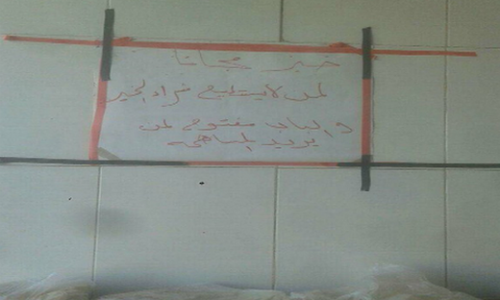 خبز مجانا
لمن لا يستطيع شراء الخبز
والباب مفتوح لمن
يريد المساهمه